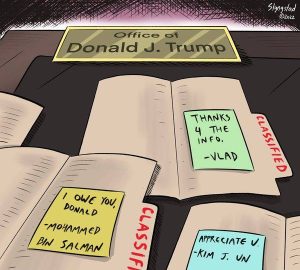 Slyngstad
©2022
Office of
Donald J. Trump
THANKS
4 THE
INFO.
-VLAD
CLASSIFIED
I OWE YOU,
DONALD
-MOHAMMED
BIN SALMAN
CLASSIFIED
APPRECIATE U
-KIM J. UN